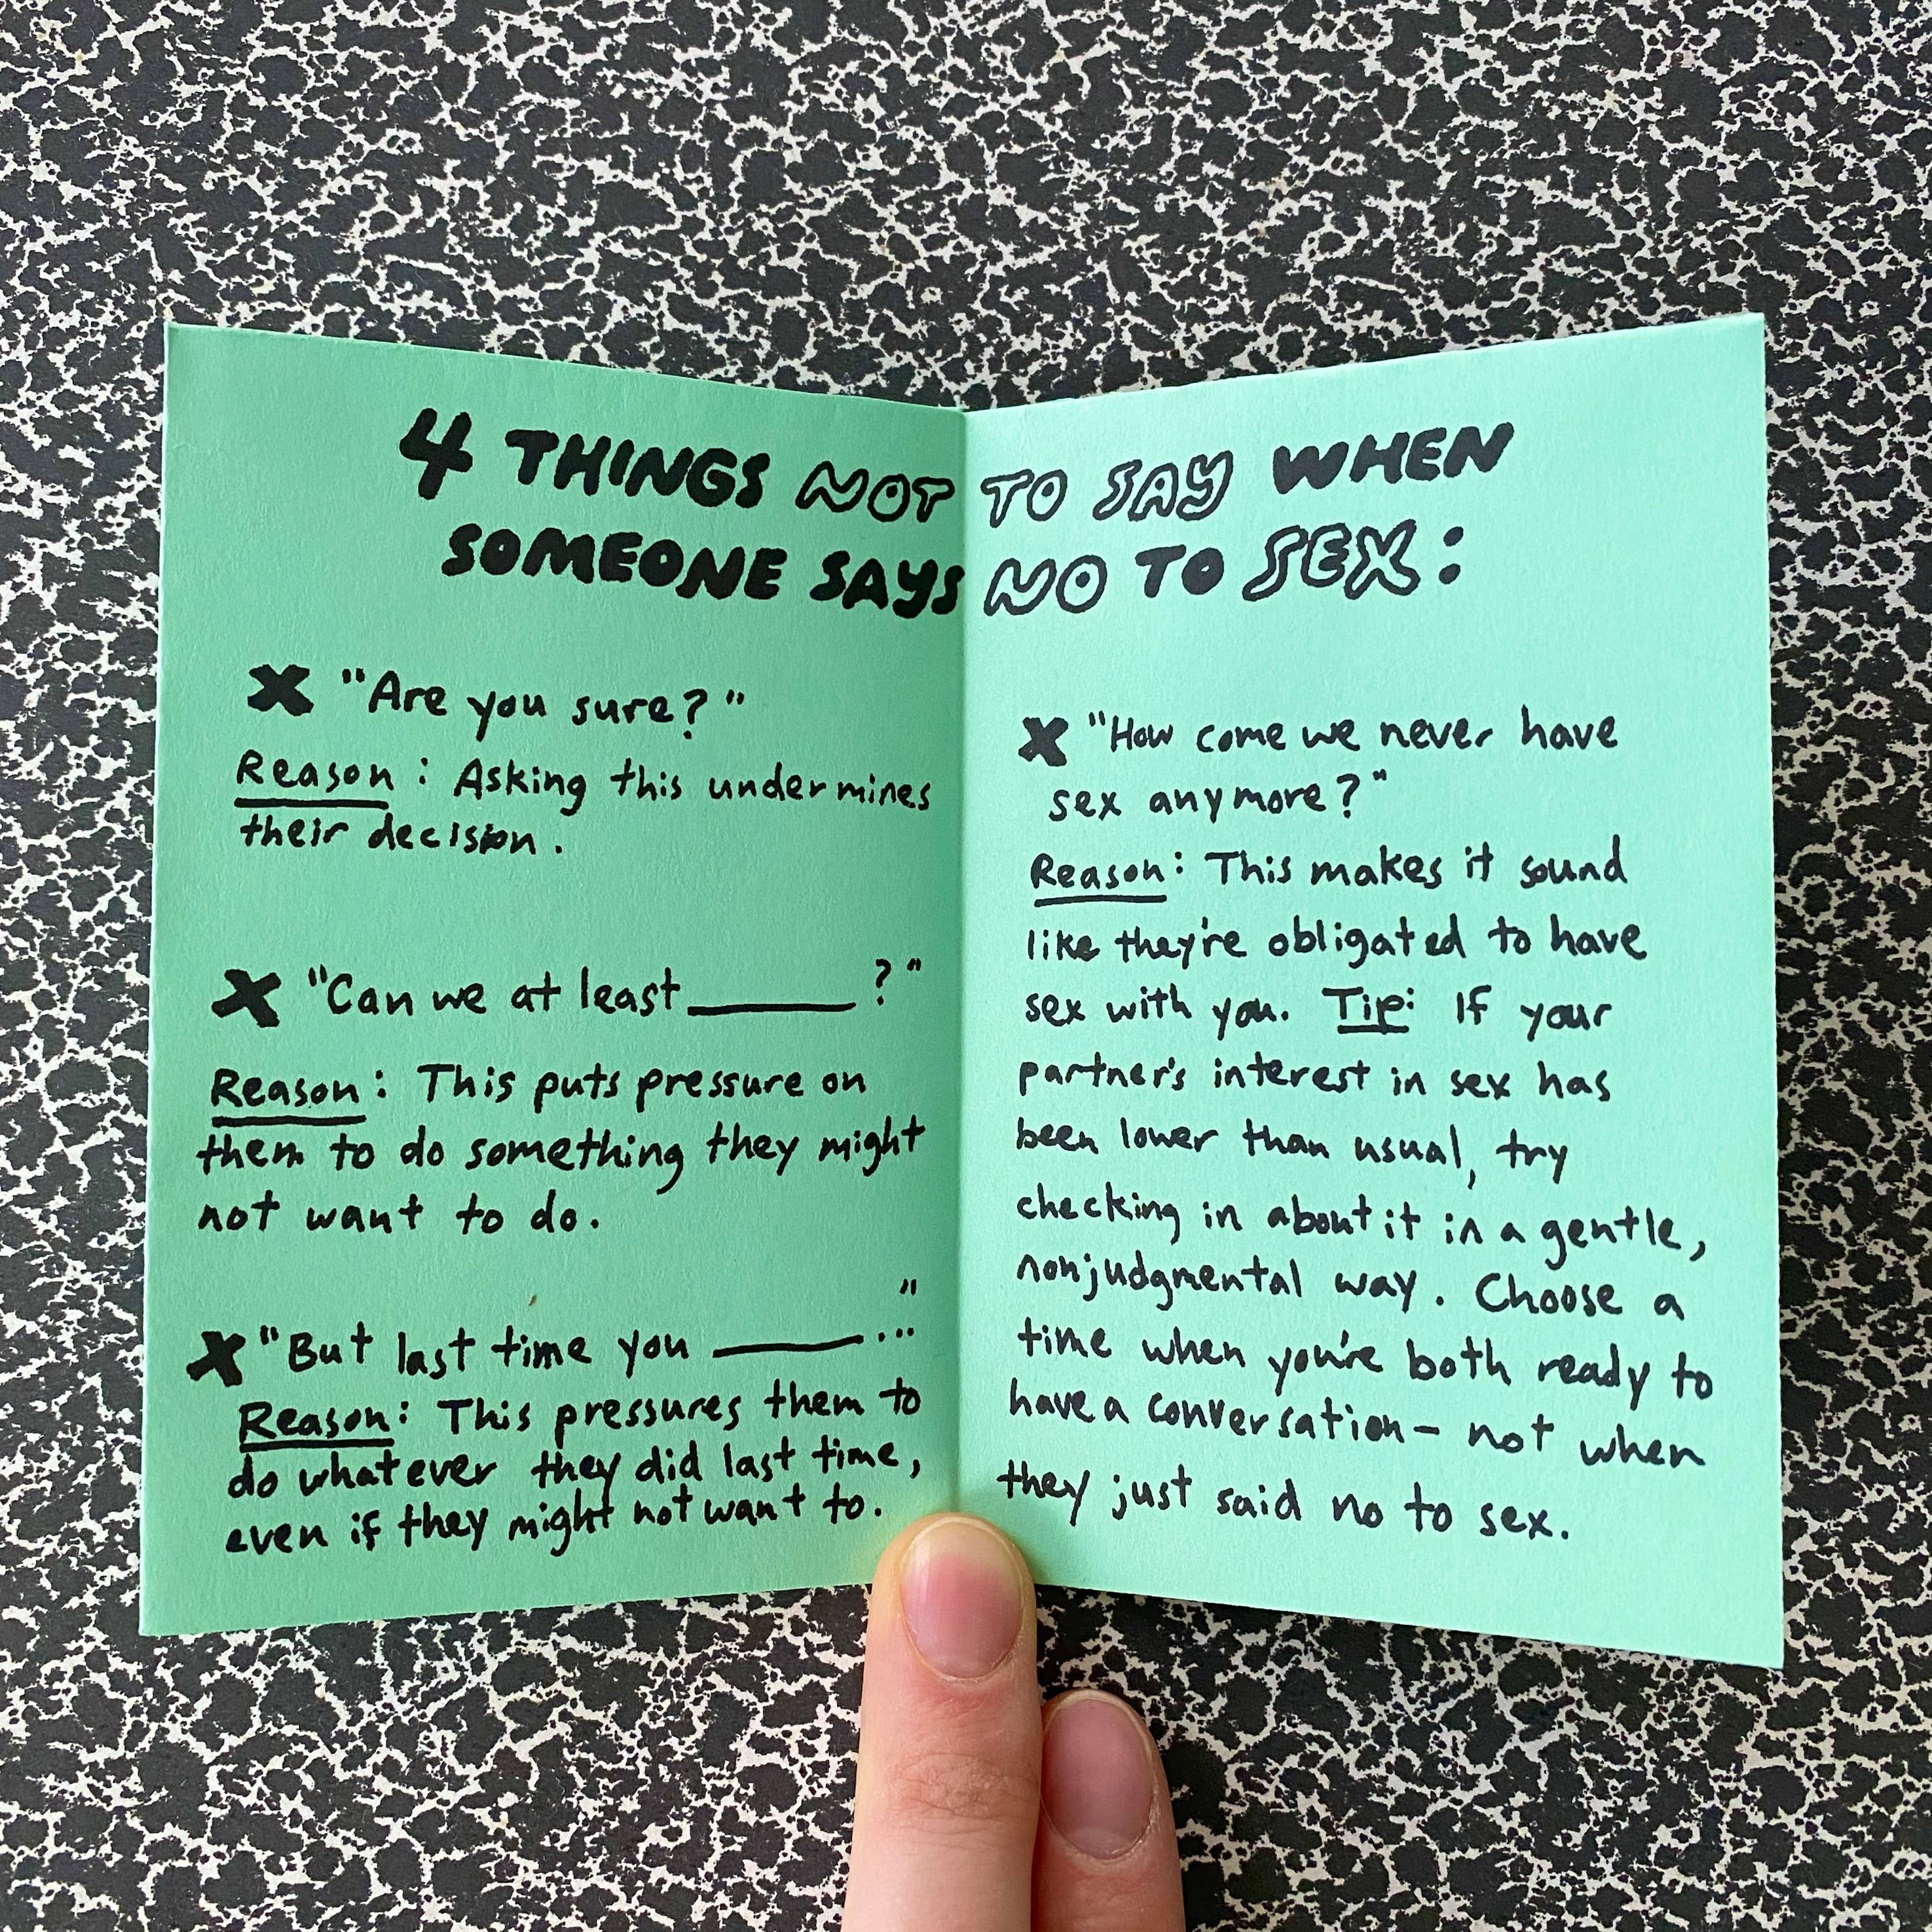 4 THINGS NOT TO SAY WHEN
SOMEONE SAYS NO TO SEX:
X "Are you sure?"
Reason: Asking this undermines
their decision.
X "Can we at least ______?"
Reason: This puts pressure on
them to do something they might
not want to do.
X "But last time you ______..."
Reason: This pressures them to
do whatever they did last time,
even if they might not want to.
X "How come we never have
sex anymore?"
Reason: This makes it sound
like they're obligated to have
sex with you. Tip: If your
partner's interest in sex has
been lower than usual, try
checking in about it in a gentle,
nonjudgmental way. Choose a
time when you're both ready to
have a conversation- not when
they just said no to sex.